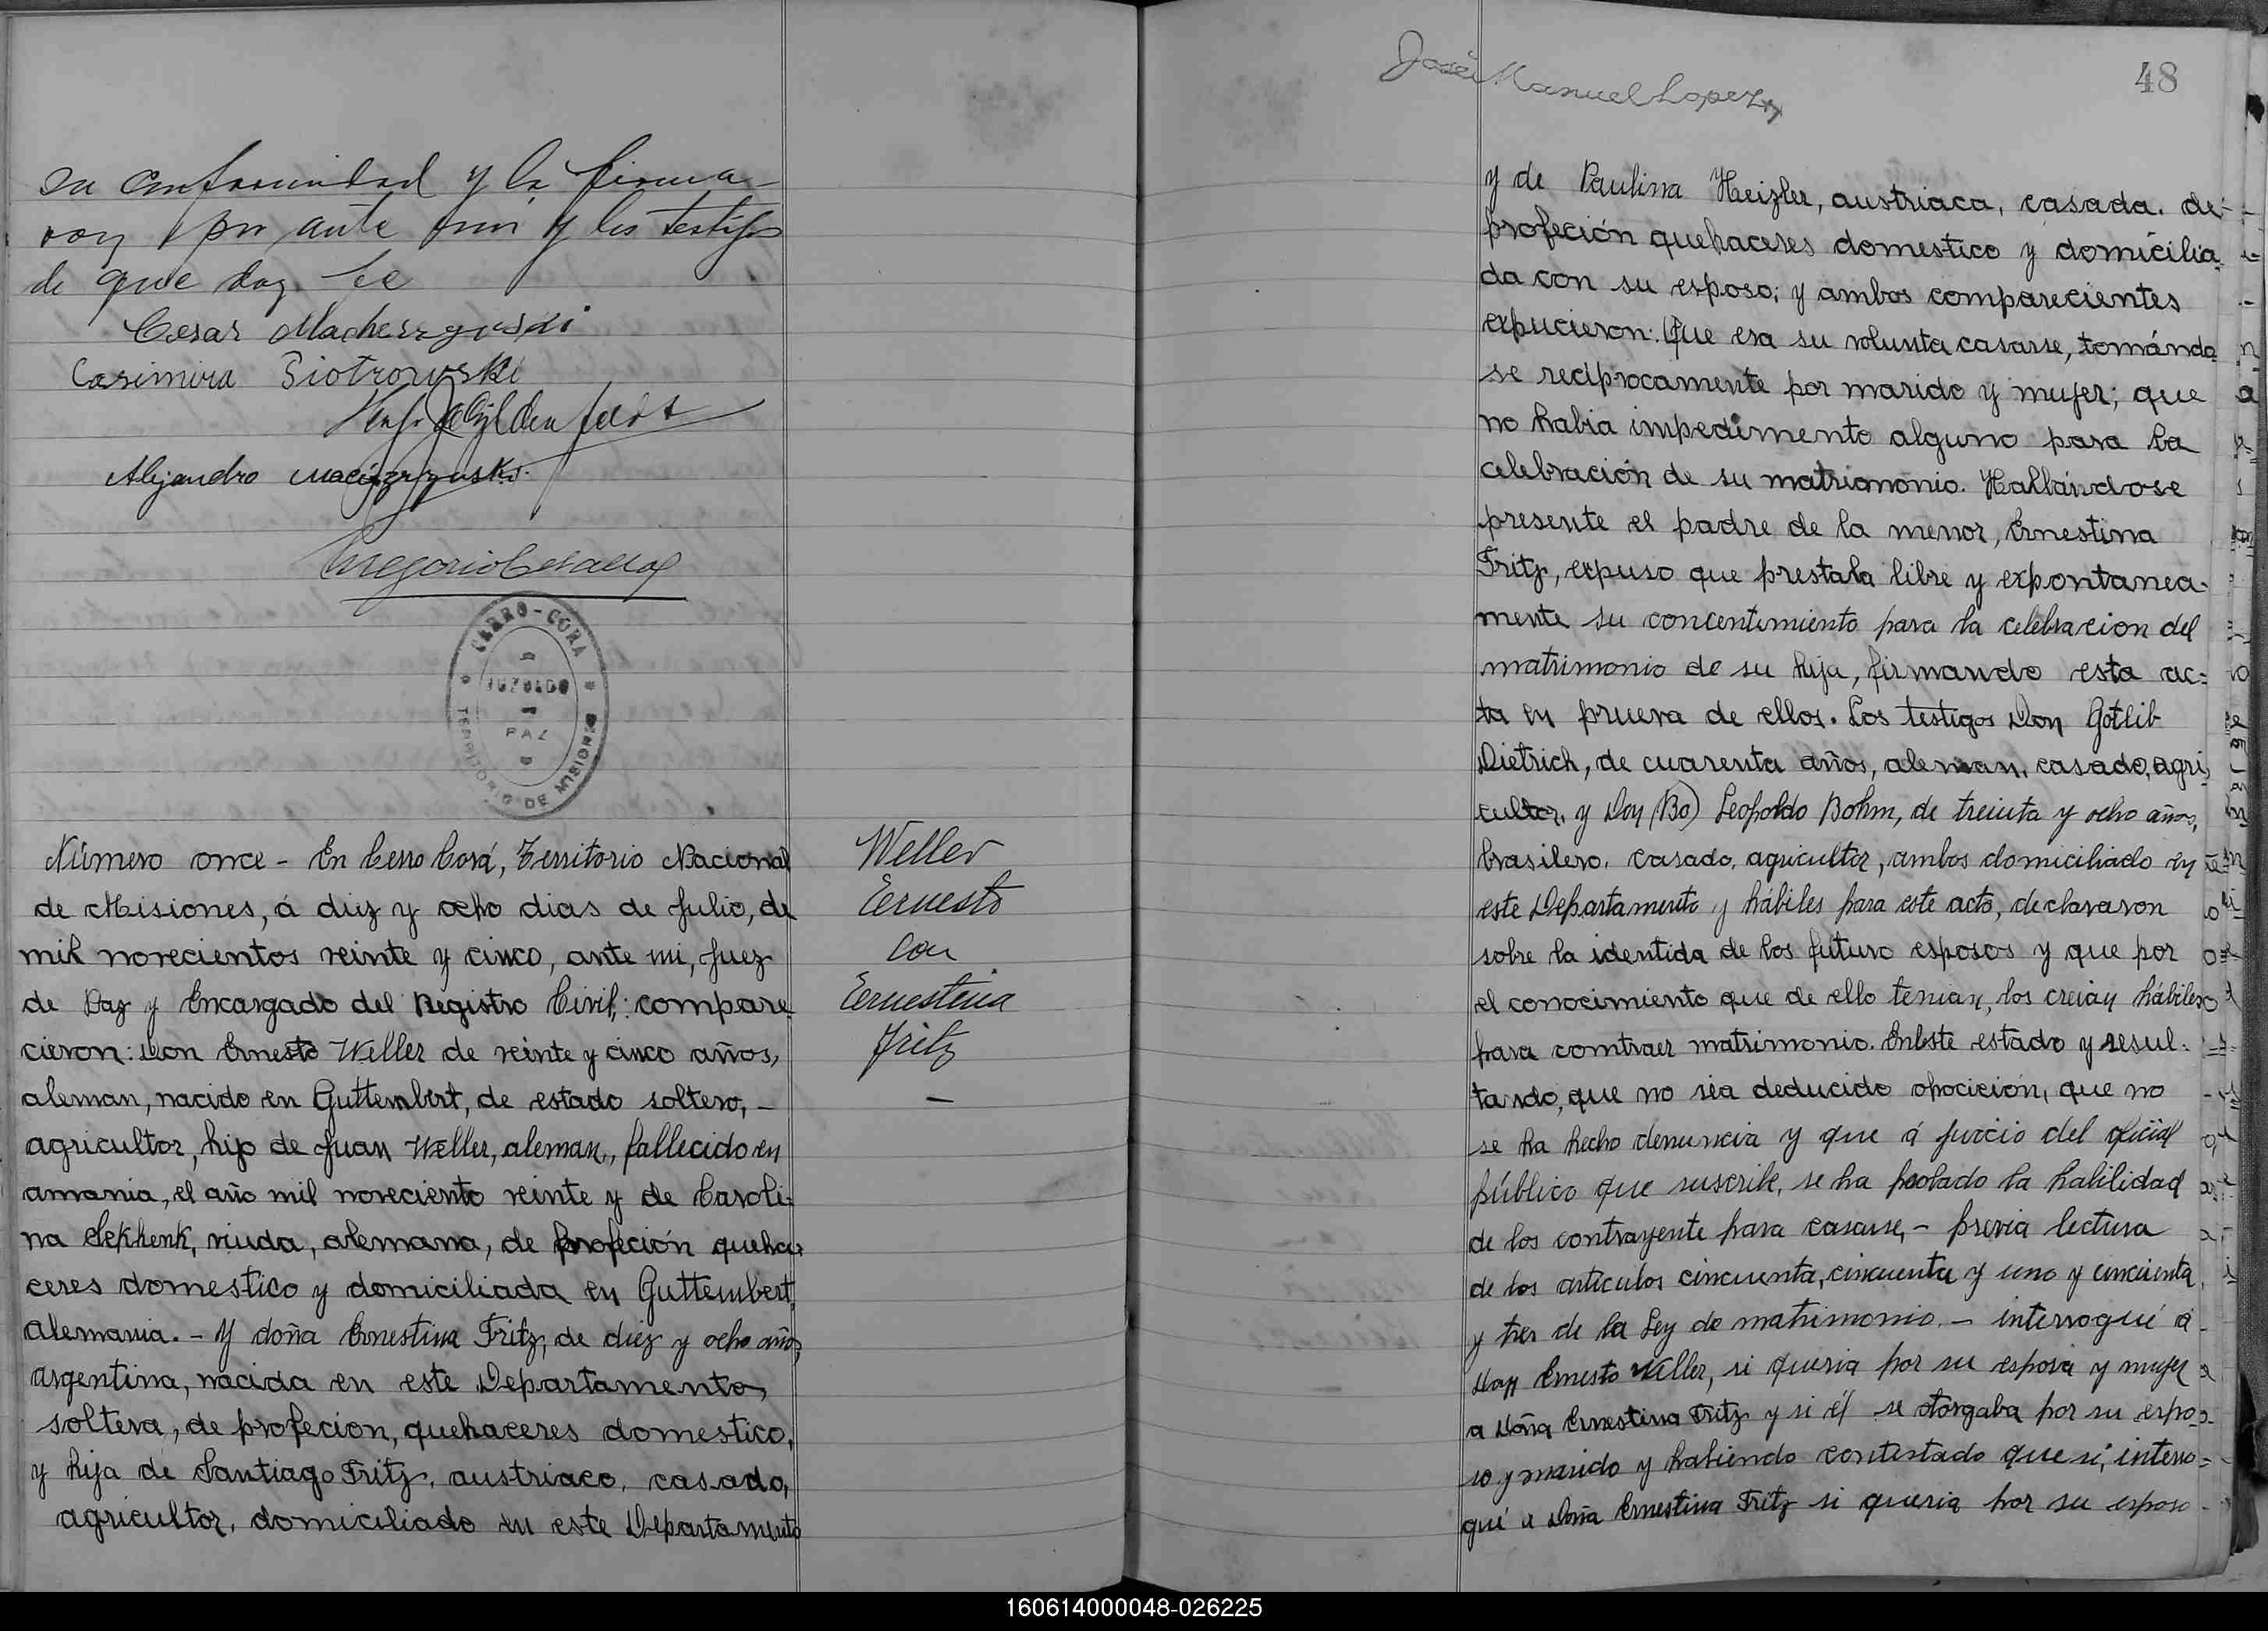 su conformidad y la firma
ron por ante mi y los testigos
de que doy fe
Cesar
Casimira Piotrowski
Alejandro
CERRO-CORA
JUZGADO
PAZ
TERRITORIO DE MISIONES
Número once - En Cerro Corá, Territorio Nacional
de Misiones, á diez y ocho dias de Julio, de
mil novecientos veinte y cinco, ante mi, Juez
de Paz y Encargado del Registro Civil,: compare=
cieron: Don Ernesto Weller de veinte y cinco años,
aleman, nacido en Guttembert, de estado soltero, -
agricultor, hijo de Juan Weller, aleman,, fallecido en
amania, el año mil noveciento veinte y de Caroli=
na Sekhenk, viuda, alemana, de profeción queha=
ceres domestico y domiciliada en Guttembert,
Alemania. - Y doña Ernestina Fritz, de diez y ocho años,
argentina, nacida en este Departamento,
soltera, de profecion, quehaceres domestico,
y hija de Santiago Fritz, austriaco, casado,
agricultor, domiciliado en este Departamento
Weller
Ernesto
con
Ernestina
Fritz
-
José Manuel Lopez
48
y de Paulina Heizler, austriaca, casada, de=
profeción quehaceres domestico y domicilia=
da con su esposo; y ambos comparecientes
expucieron: Que era su volunta casarse, tomándo
se reciprocamente por marido y mujer; que
no habia impedimento alguno para la
celebración de su matrimonio. Hallándose
presente el padre de la menor, Ernestina
Fritz, expuso que prestala libre y expontanea-
mente su concentimiento para la celebracion del
matrimonio de su hija, firmando esta ac=
ta en prueva de ellos. Los testigos Don Gotlib
Dietrich, de cuarenta años, aleman, casado, agri
cultor, y Don (Bo) Leopoldo Bohm, de treinta y ocho años,
brasilero, casado, agricultor, ambos domiciliado en
este Departamento y hábiles para este acto, declararon
sobre la identida de los futuro esposos y que por
el conocimiento que de ello tenian, los creian hábiles
para comtraer matrimonio. En este estado y resul-
tando, que no séa deducido opocición, que no
se ha hecho denuncia y que á juicio del oficial
público que suscribe, se ha probado la habilidad
de los contrayente para casarse, - previa lectura
de los articulos cincuenta, cincuenta y uno y cincuenta
y tres de la Ley de matrimonio. - interrogué á
Don Ernesto Weller, si queria por su esposa y mujer
a Doña Ernestina Fritz y si él se otorgaba por su espo=
so y marido y habiendo contestado que si, interro=
gué a Doña Ernestina Fritz si queria por su esposo
160614000048-026225